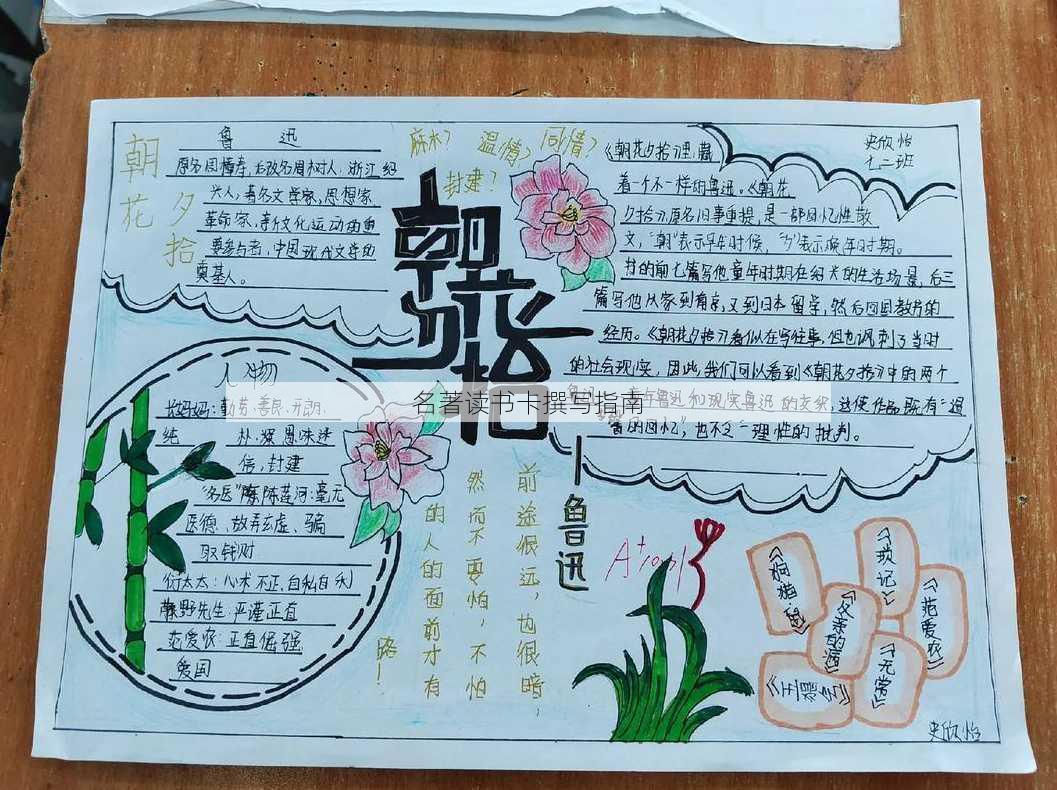 朝花夕拾
鲁 迅
原名周樟寿,后改名周树人,浙江绍
兴人,著名文学家,思想家
革命家,新文化运动的重
要参与者,中国现代文学的
奠基人。
麻木?
温情?
同情?
封建?
朝花夕拾
鲁迅
《朝花夕拾》里,藏
着一个不一样的鲁迅。《朝花
夕拾》原名旧事重提,是一部回忆性散
文,“朝”表示早年时候,“夕”表示晚年时期。
书的前七篇写他童年时期在绍兴的生活场景,后三
篇写他从家到南京,又到日本留学,然后回国教书的
经历。《朝花夕拾》看似在写往事,但也讽刺了当时
的社会现实,因此,我们可以看到《朝花夕拾》中的两个
鲁迅和现实鲁迅的交织,这使作品既有“温
的回忆”,也不乏“理性的批判。
史欣怡
七二班
名著读书卡撰写指南
人物
长妈妈:勤劳、善良、开朗、
纯 朴、愚昧迷
信,封建
“名医”陈莲河:毫无
医德、故弄玄虚、骗
取钱财
衍太太:心术不正,自私自利
藤野先生:严谨正直
范爱农:正直倔强,
爱国
前途很远,也很暗,
然而不要怕,不怕
的人的面前才有
路!
A+
《狗·猫·鼠》
《琐记》
《父亲的病》
《范爱农》
《无常》
《五猖会》
史欣怡